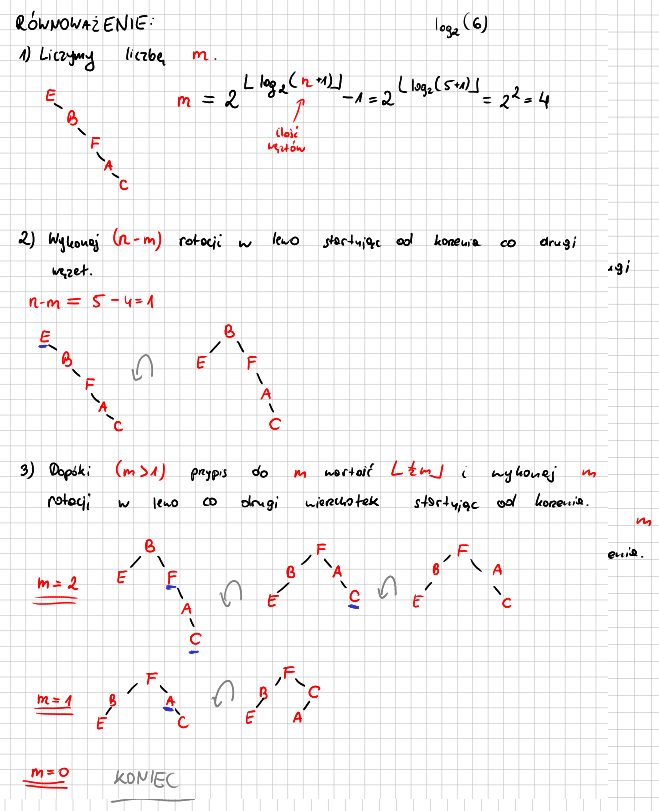 RÓWNOWAŻENIE:
log₂(6)
1) Liczymy liczbę m.
m = 2^⌊log₂(n+1)⌋ - 1 = 2^⌊log₂(5+1)⌋ = 2² = 4
ilość
węzłów
E
B
F
A
C
2) Wykonaj (n-m) rotacji w lewo startując od korzenia co drugi
ugi
węzeł.
n-m = 5-4=1
E
B
F
A
C
B
E F
A
C
3) Dopóki (m>1) przypis do m wartość ⌊½m⌋ i wykonaj m
rotacji w lewo co drugi wierzchołek startując od korzenia.
m
enia.
m=2
B
E F
A
C
F
B A
E C
F
B A
E C
m=1
F
B A
E C
F
B C
E A
m=0 KONIEC